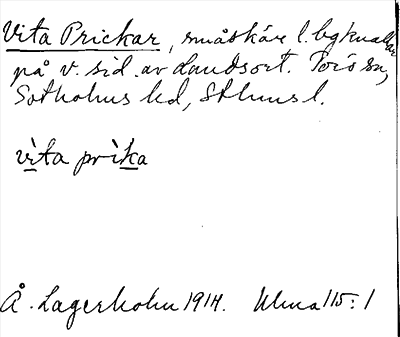 Vita Prickar, småskär l. bgknallar
på v. sid. av Landsort. Torö sn,
Sotholms hd, Sthlms l.
vita prìka
Å. Lagerholm 1914. Ulma 115:1